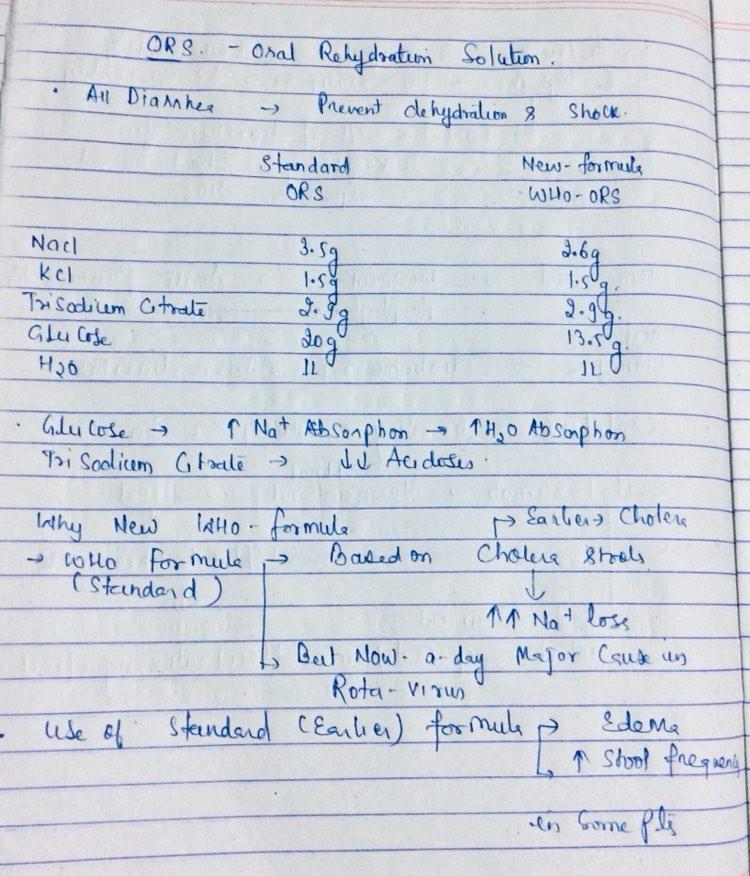 ORS. - Oral Rehydration Solution.
• All Diarrhea → Prevent dehydration & Shock.
Standard New-formula
ORS WHO-ORS
Nacl 3.5g 2.6g
KCl 1.5g 1.5g.
Trisodium Citrate 2.9g 2.9g.
Glucose 20g 13.5g.
H2O 1L 1L
• Glucose → ↑ Na+ Absorption → ↑H2O Absorption
Tri Sodium Citrate → ↓↓ Acidosis.
Why New WHO-formula → Earlier → Cholera
→ WHO formula → Based on Cholera Stools
(Standard) ↓
↑↑ Na+ loss
↳ But Now-a-day Major Cause is
Rota-virus
• Use of Standard (Earlier) formula → Edema
↳ ↑ Stool frequency
in Some pts